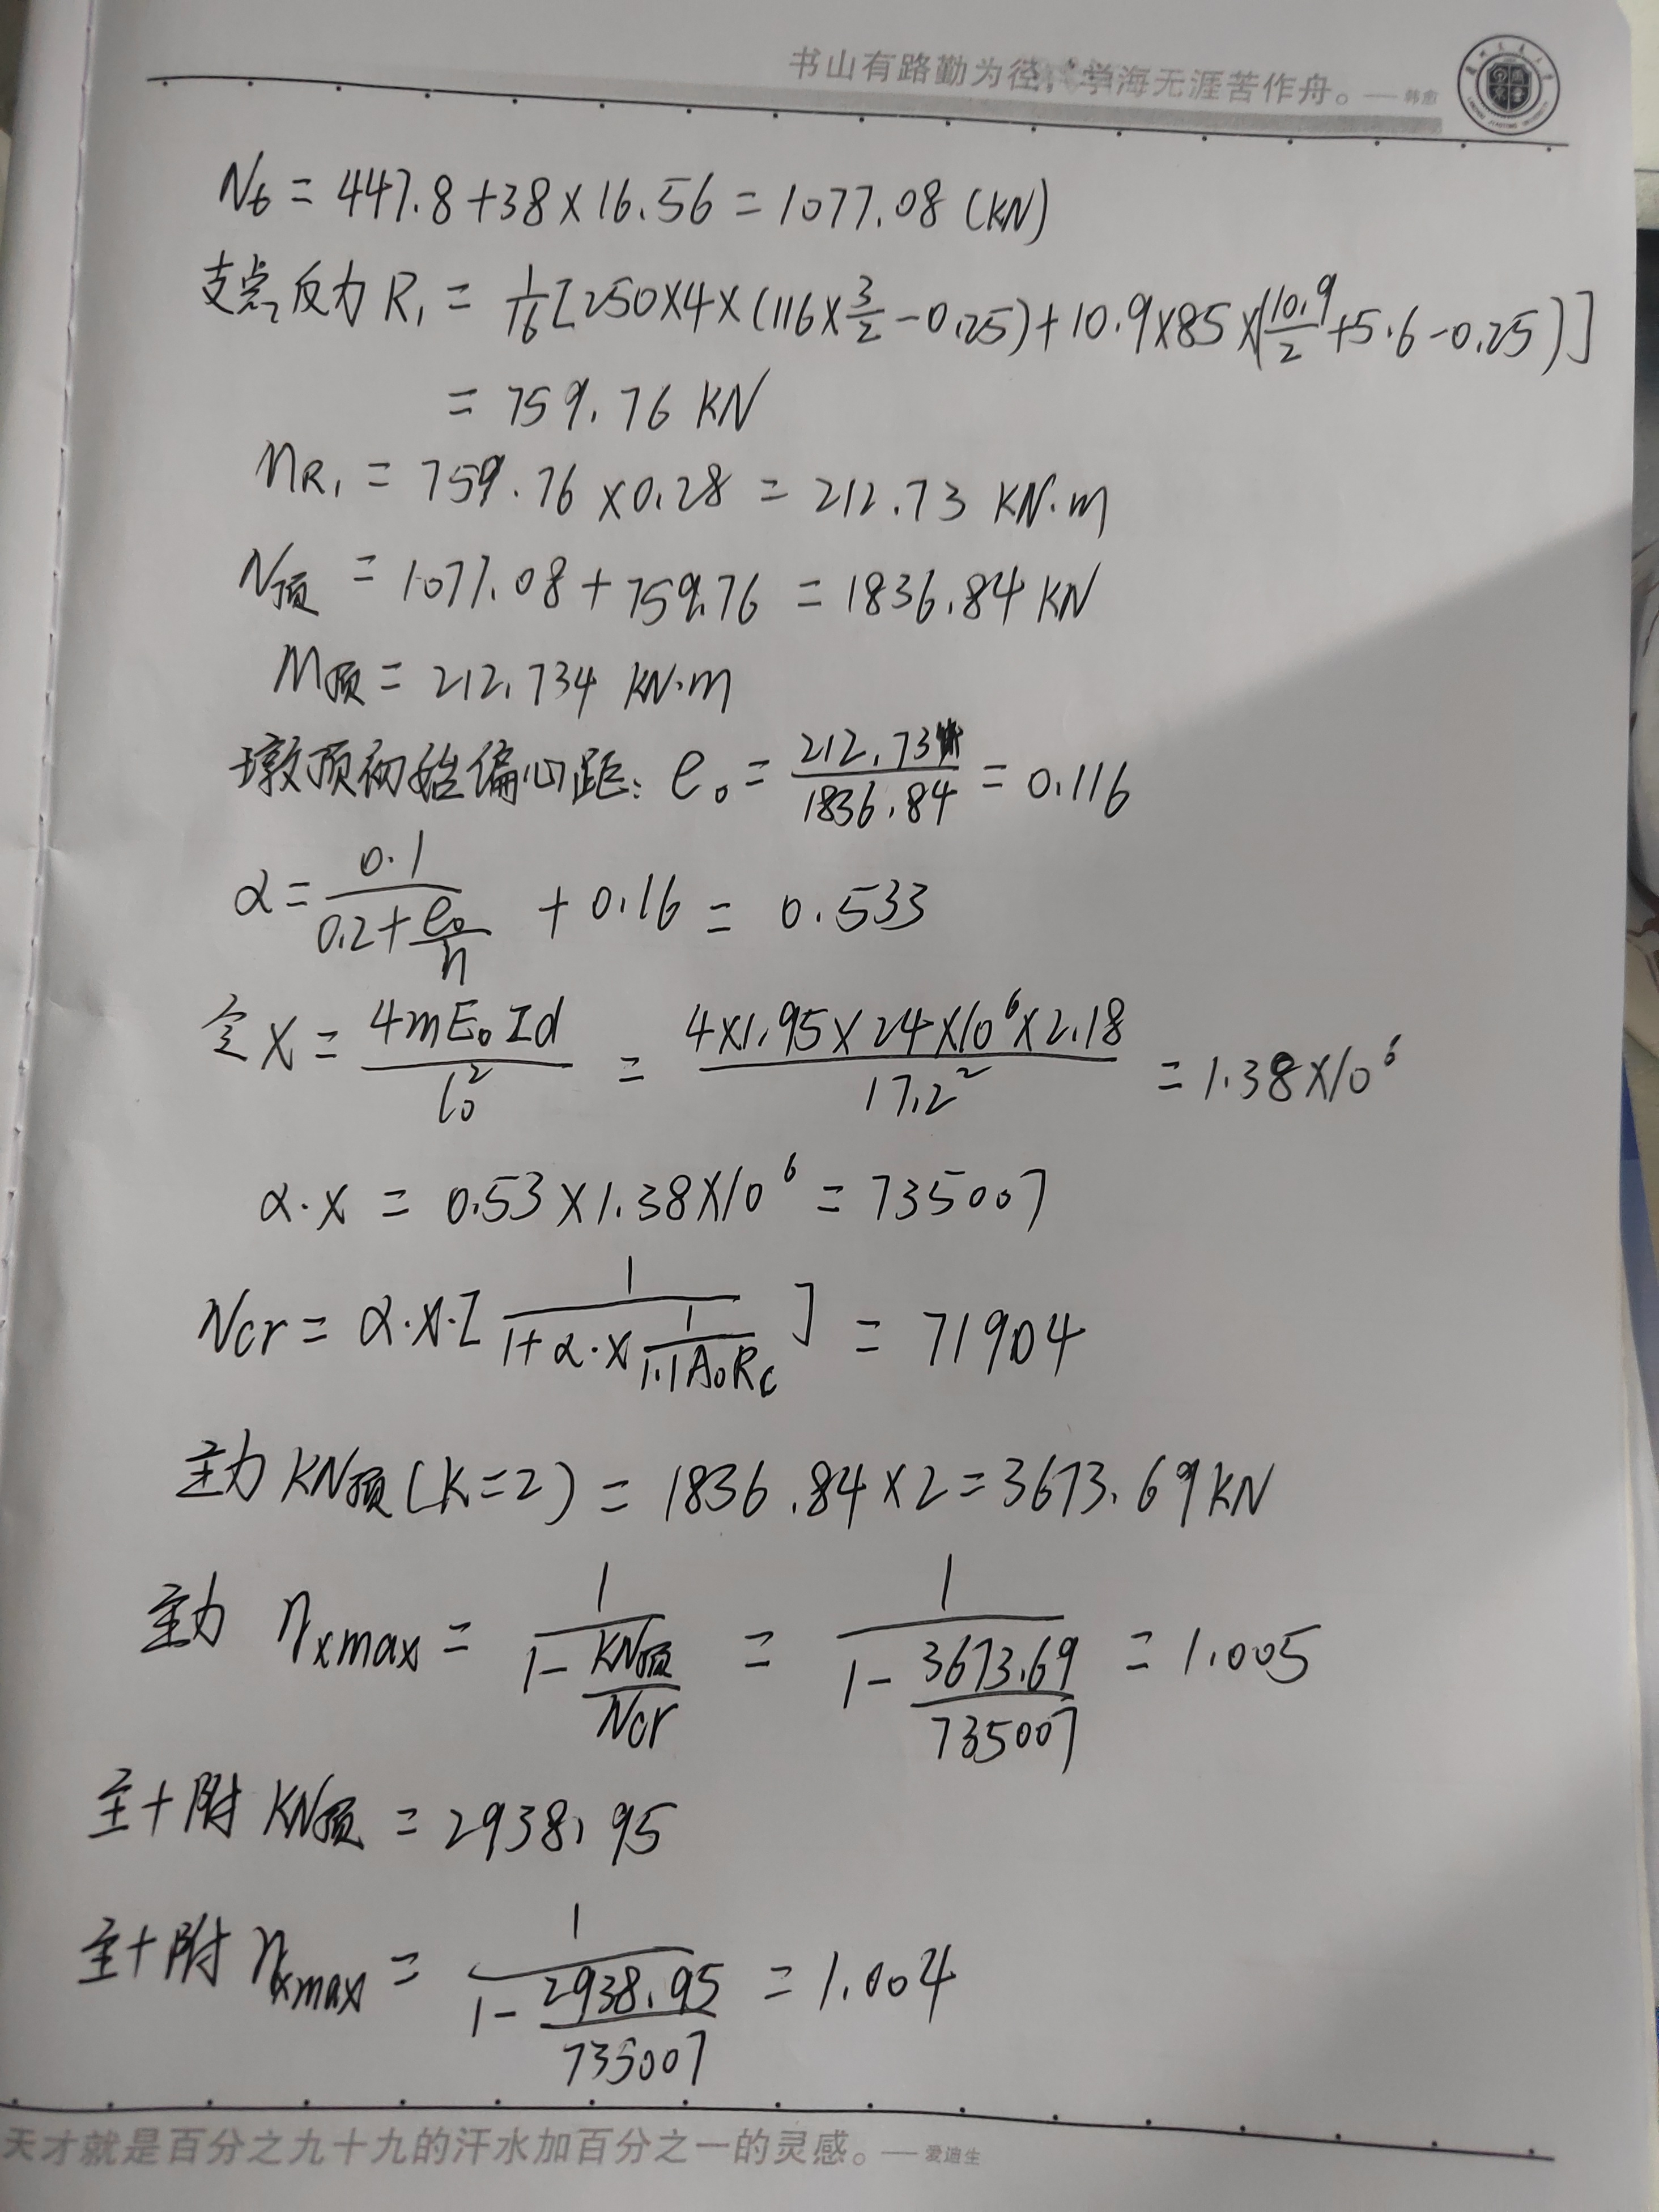 书山有路勤为径，学海无涯苦作舟。——韩愈
N6 = 447.8+38×16.56 = 1077.08 (KN)
支点反力 R₁ = 1/16 [250×4×(116×3/2-0.25)+10.9×85×(10.9/2+5.6-0.25)]
= 759.76 KN
MR₁ = 759.76×0.28 = 212.73 KN·m
N顶 = 1077.08+759.76 = 1836.84 KN
M顶 = 212.734 KN·m
墩顶初始偏心距: e₀ = 212.734/1836.84 = 0.116
α = 0.1/(0.2+e₀/h) + 0.16 = 0.533
令 X = 4mE₀Id/l₀² = 4×1.95×24×10⁶×2.18/17.2² = 1.38×10⁶
α·X = 0.53×1.38×10⁶ = 735007
Ncr = α·X·[1/(1+α·X 1/(1.1A₀Rc))] = 71904
主力 KN顶(K=2) = 1836.84×2 = 3673.69KN
主力 ηxmax = 1/(1-KN顶/Ncr) = 1/(1-3673.69/735007) = 1.005
主+附 KN顶 = 2938.95
主+附 ηxmax = 1/(1-2938.95/735007) = 1.004
天才就是百分之九十九的汗水加百分之一的灵感。——爱迪生